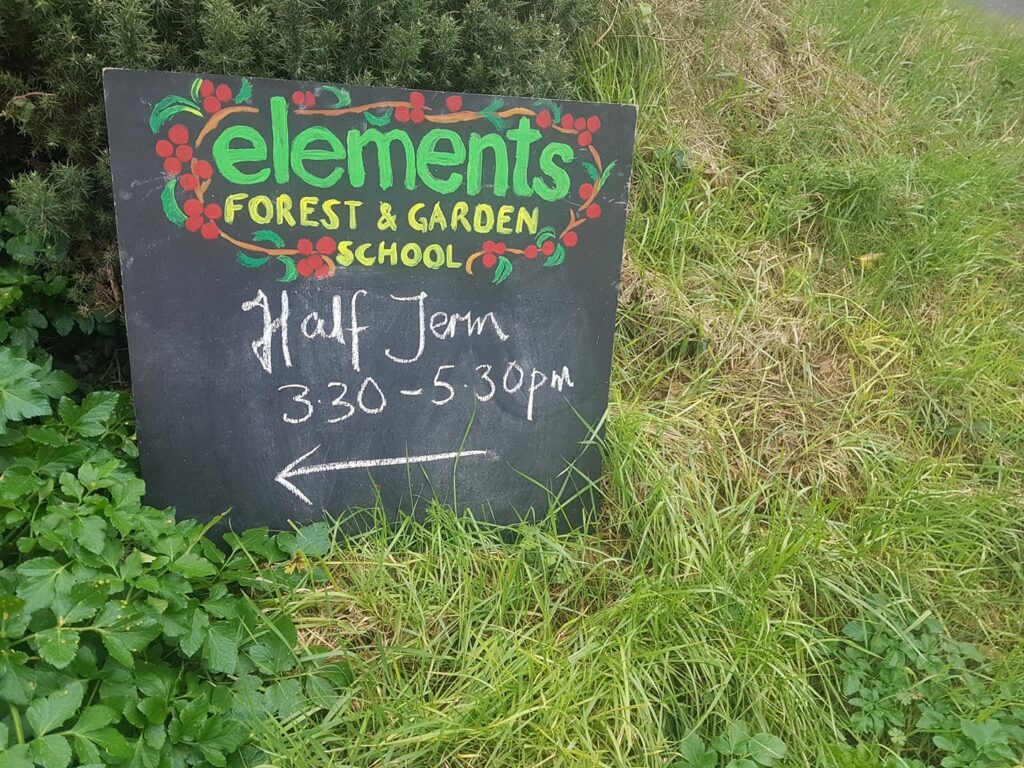 elements
FOREST & GARDEN
SCHOOL
Half Term
3.30 - 5.30pm